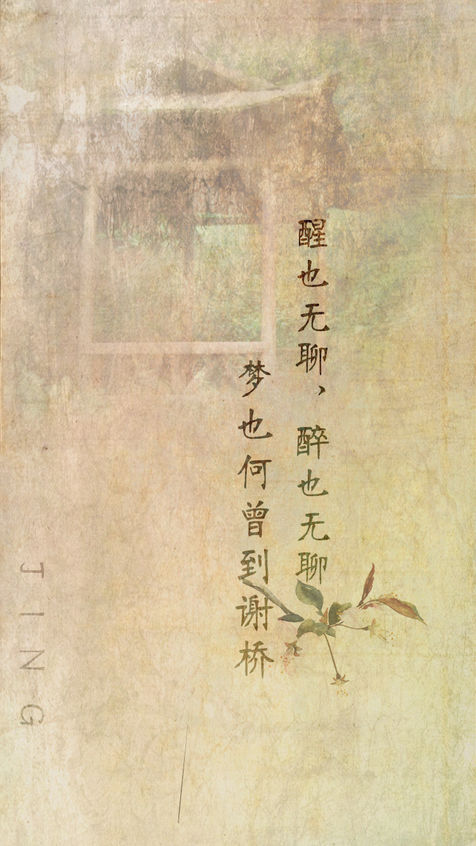 醒也无聊，醉也无聊
梦也何曾到谢桥
JING